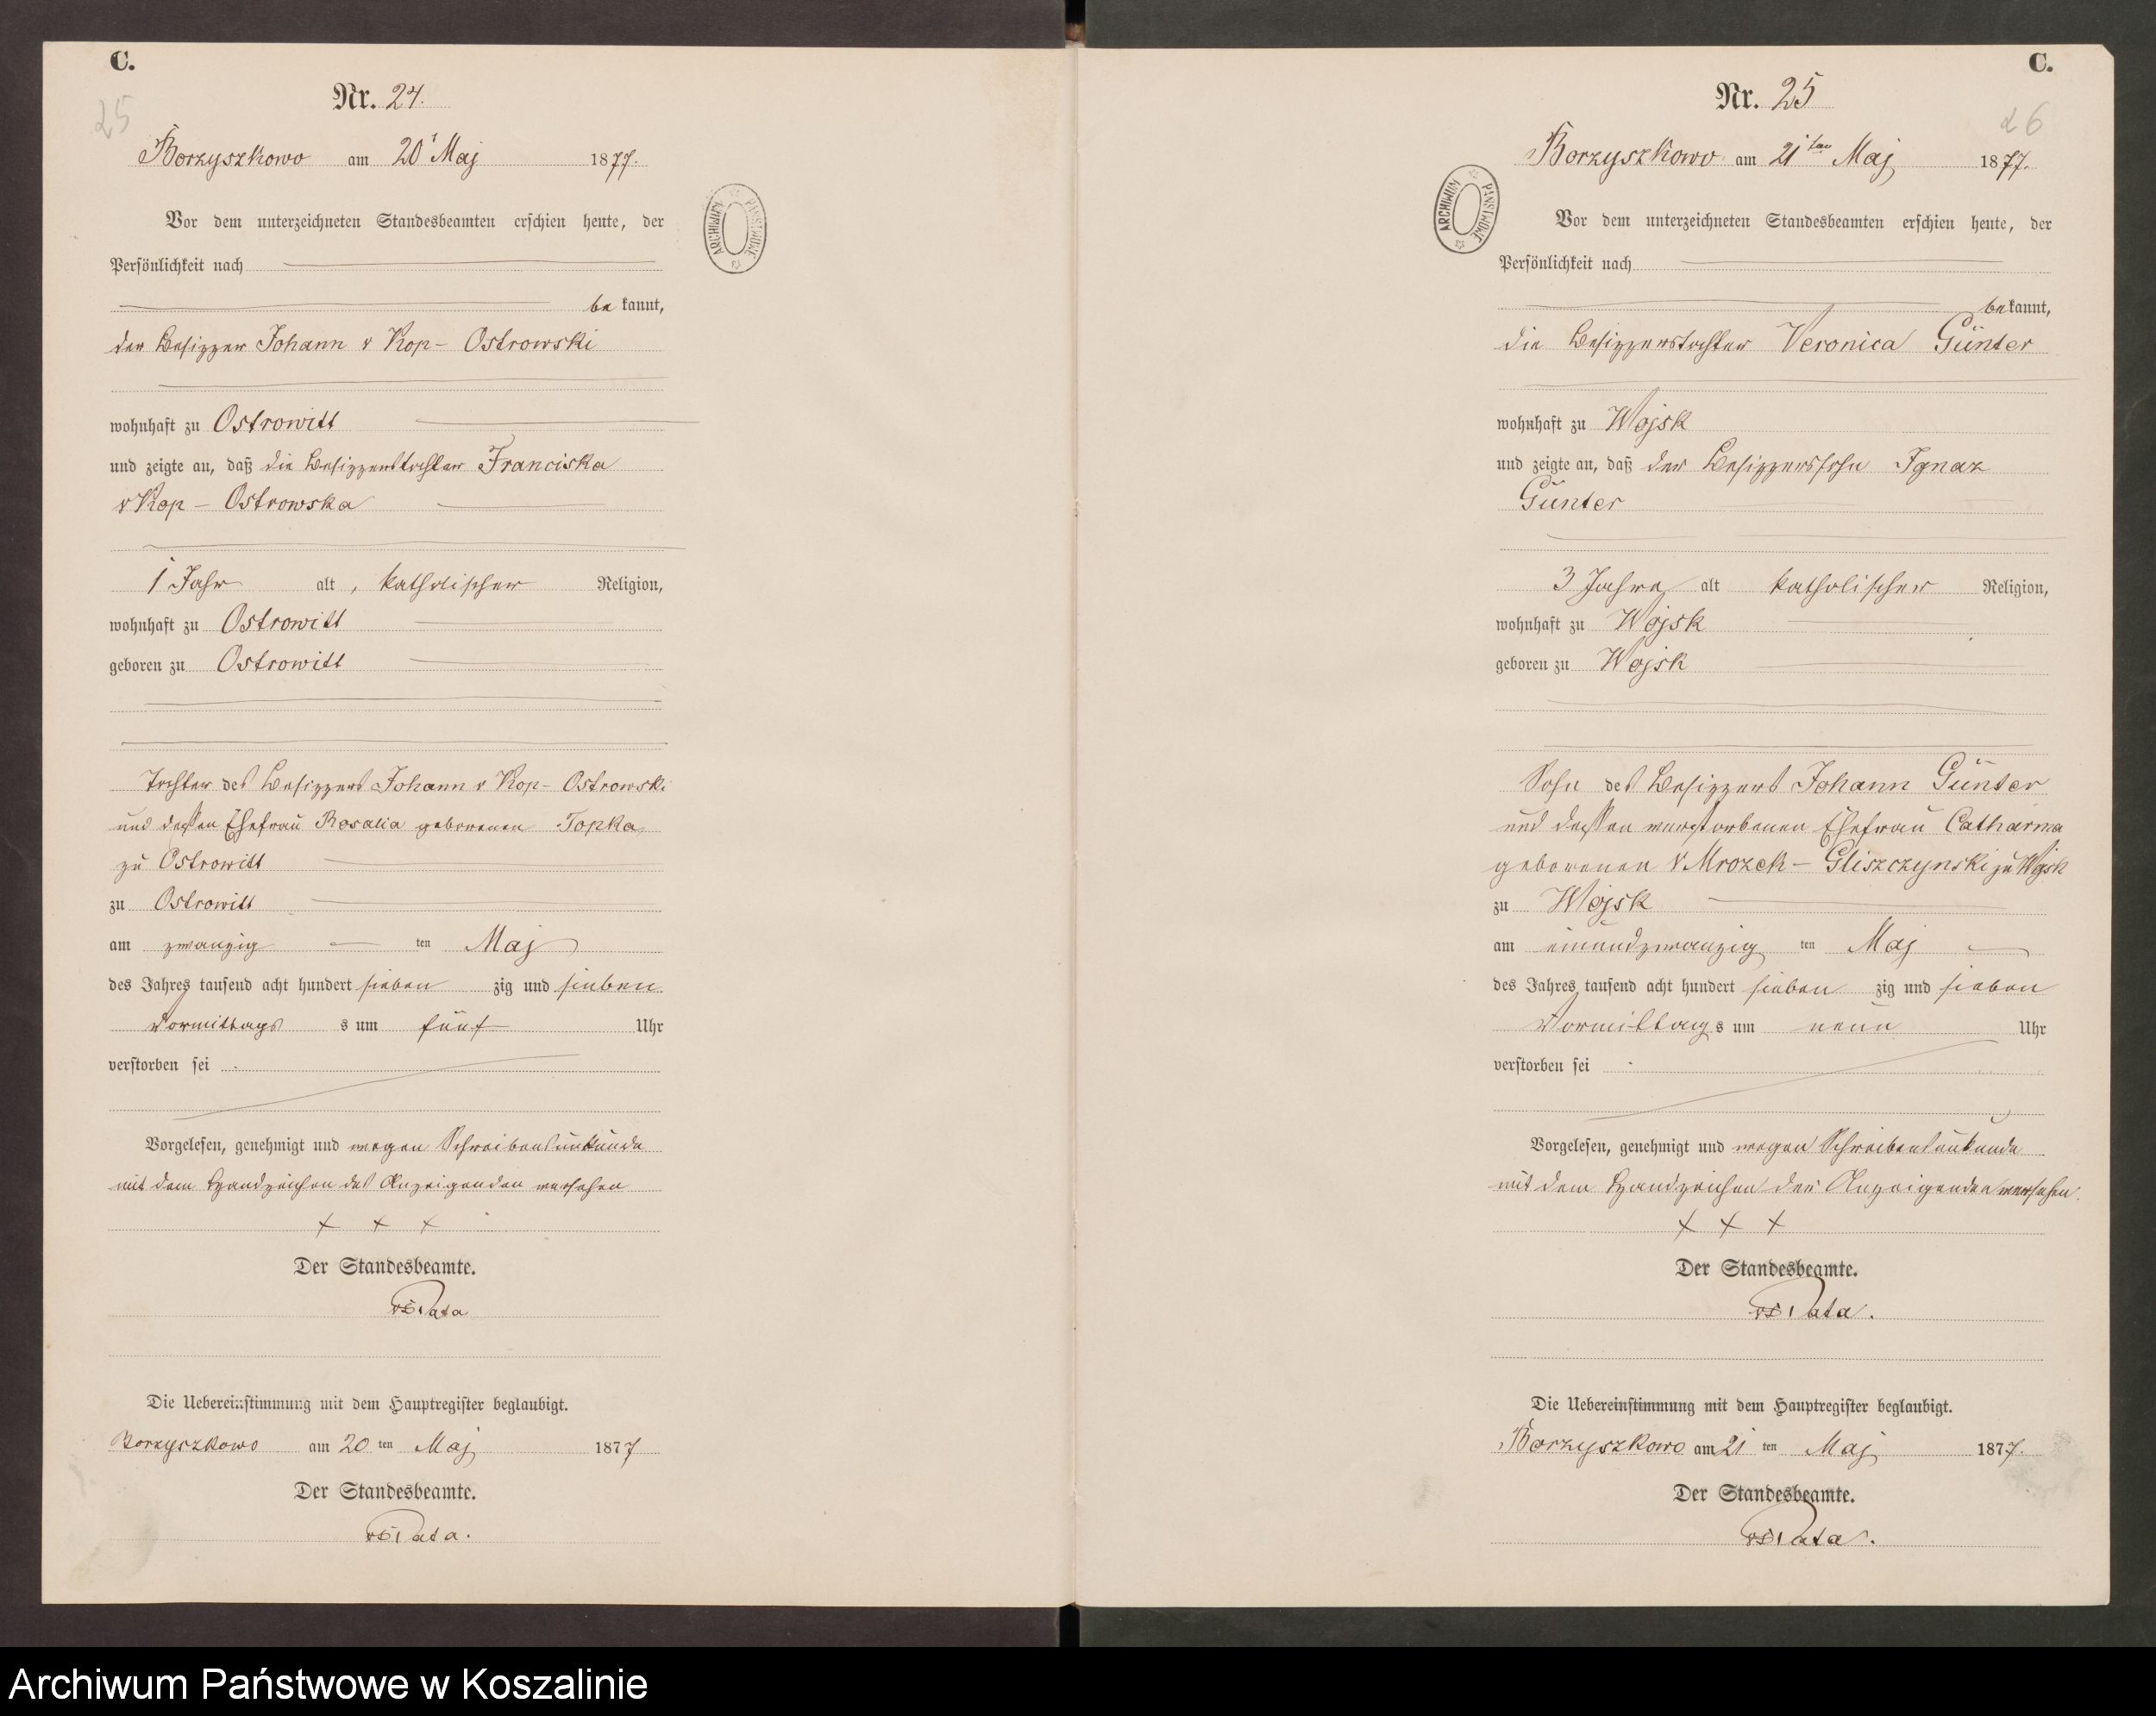 C.
Nr. 24.
25
Borzyszkowo am 20t Maj 1877.
Vor dem unterzeichneten Standesbeamten erschien heute, der
Persönlichkeit nach
be kannt,
der Besizzer Johann v Kop- Ostrowski
wohnhaft zu Ostrowitt
und zeigte an, daß die Besizzerstochter Franciska
v Kop - Ostrowska
1 Jahr alt, katholischer Religion,
wohnhaft zu Ostrowitt
geboren zu Ostrowitt
Tochter des Besizzers Johann v Kop- Ostrowski
und dessen Ehefrau Rosalia geborenen Topka
zu Ostrowitt
zu Ostrowitt
am zwanzig ten Maj
des Jahres tausend acht hundert sieben zig und sieben
Vormittags s um fünf Uhr
verstorben sei
Vorgelesen, genehmigt und wegen Schreibensunkunde
mit dem Handzeichen des Anzeigenden versehen
+ + +
Der Standesbeamte.
Pata
Die Uebereinstimmung mit dem Hauptregister beglaubigt.
Borzyszkowo am 20 ten Maj 1877
Der Standesbeamte.
Pata.
ARCHIWUM PAŃSTWOWE
C.
Nr. 25
26
Borzyszkowo am 21ten Maj 1877.
Vor dem unterzeichneten Standesbeamten erschien heute, der
Persönlichkeit nach
bekannt,
die Besizzerstochter Veronica Günter
wohnhaft zu Wojsk
und zeigte an, daß der Besizzerssohn Ignaz
Günter
3 Jahre alt katholischer Religion,
wohnhaft zu Wojsk
geboren zu Wojsk
Sohn des Besizzers Johann Günter
und dessen verstorbenen Ehefrau Catharina
geborenen v Mrozek - Gliszczynski zu Wojsk
zu Wojsk
am einundzwanzig ten Maj
des Jahres tausend acht hundert sieben zig und sieben
Vormittag s um neun Uhr
verstorben sei
Vorgelesen, genehmigt und wegen Schreibensunkunde
mit dem Handzeichen der Anzeigenden versehen.
+ + +
Der Standesbeamte.
Pata.
Die Uebereinstimmung mit dem Hauptregister beglaubigt.
Borzyszkowo am 21 ten Maj 1877.
Der Standesbeamte.
Pata.
ARCHIWUM PAŃSTWOWE
Archiwum Państwowe w Koszalinie